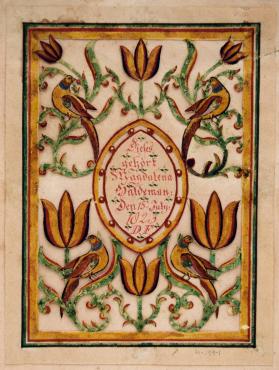 Dieses
gehört
Magdalena
Haldeman:
Den 15 July
1825
D. F.